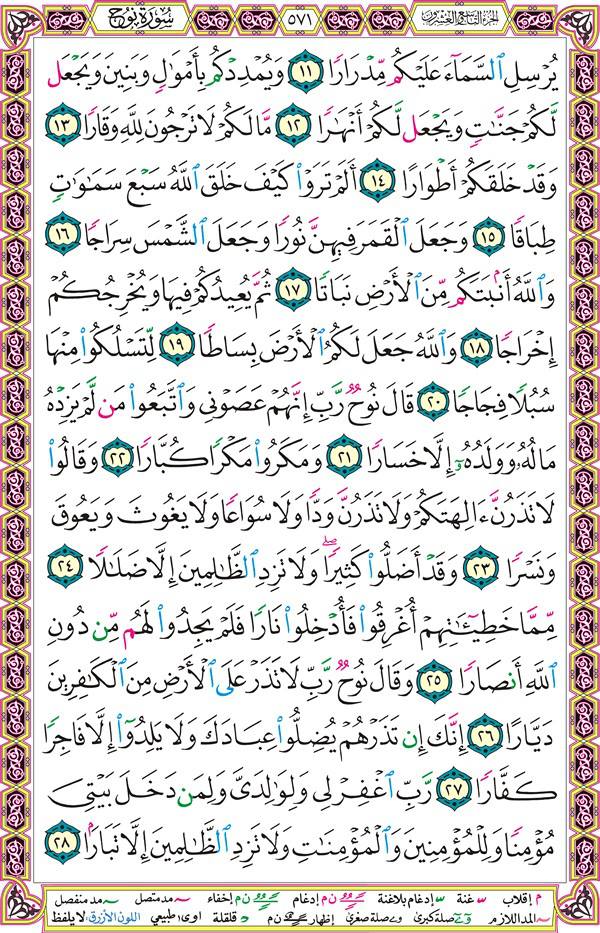 الجزء التاسع والعشرون ٥٧١ سُورَةُ نُوحٍ
يُرْسِلِ ٱلسَّمَآءَ عَلَيْكُم مِّدْرَارًا ١١ وَيُمْدِدْكُم بِأَمْوَٰلٍ وَبَنِينَ وَيَجْعَل
لَّكُمْ جَنَّٰتٍ وَيَجْعَل لَّكُمْ أَنْهَٰرًا ١٢ مَّا لَكُمْ لَا تَرْجُونَ لِلَّهِ وَقَارًا ١٣
وَقَدْ خَلَقَكُمْ أَطْوَارًا ١٤ أَلَمْ تَرَوْا۟ كَيْفَ خَلَقَ ٱللَّهُ سَبْعَ سَمَٰوَٰتٍ
طِبَاقًا ١٥ وَجَعَلَ ٱلْقَمَرَ فِيهِنَّ نُورًا وَجَعَلَ ٱلشَّمْسَ سِرَاجًا ١٦
وَٱللَّهُ أَنۢبَتَكُم مِّنَ ٱلْأَرْضِ نَبَاتًا ١٧ ثُمَّ يُعِيدُكُمْ فِيهَا وَيُخْرِجُكُمْ
إِخْرَاجًا ١٨ وَٱللَّهُ جَعَلَ لَكُمُ ٱلْأَرْضَ بِسَاطًا ١٩ لِّتَسْلُكُوا۟ مِنْهَا
سُبُلًا فِجَاجًا ٢٠ قَالَ نُوحٌ رَّبِّ إِنَّهُمْ عَصَوْنِى وَٱتَّبَعُوا۟ مَن لَّمْ يَزِدْهُ
مَالُهُۥ وَوَلَدُهُۥٓ إِلَّا خَسَارًا ٢١ وَمَكَرُوا۟ مَكْرًا كُبَّارًا ٢٢ وَقَالُوا۟
لَا تَذَرُنَّ ءَالِهَتَكُمْ وَلَا تَذَرُنَّ وَدًّا وَلَا سُوَاعًا وَلَا يَغُوثَ وَيَعُوقَ
وَنَسْرًا ٢٣ وَقَدْ أَضَلُّوا۟ كَثِيرًا ۖ وَلَا تَزِدِ ٱلظَّٰلِمِينَ إِلَّا ضَلَٰلًا ٢٤
مِّمَّا خَطِيٓـَٰٔتِهِمْ أُغْرِقُوا۟ فَأُدْخِلُوا۟ نَارًا فَلَمْ يَجِدُوا۟ لَهُم مِّن دُونِ
ٱللَّهِ أَنصَارًا ٢٥ وَقَالَ نُوحٌ رَّبِّ لَا تَذَرْ عَلَى ٱلْأَرْضِ مِنَ ٱلْكَٰفِرِينَ
دَيَّارًا ٢٦ إِنَّكَ إِن تَذَرْهُمْ يُضِلُّوا۟ عِبَادَكَ وَلَا يَلِدُوٓا۟ إِلَّا فَاجِرًا
كَفَّارًا ٢٧ رَّبِّ ٱغْفِرْ لِى وَلِوَٰلِدَىَّ وَلِمَن دَخَلَ بَيْتِىَ
مُؤْمِنًا وَلِلْمُؤْمِنِينَ وَٱلْمُؤْمِنَٰتِ وَلَا تَزِدِ ٱلظَّٰلِمِينَ إِلَّا تَبَارًۢا ٢٨
م إقلاب غنة إدغام بلاغنة ن م إدغام ن م إخفاء مد متصل مد منفصل
المد اللازم صلة كبرى صلة صغرى إظهار ن م قلقلة اوى؛ طبيعي اللون الأزرق: لا يلفظ